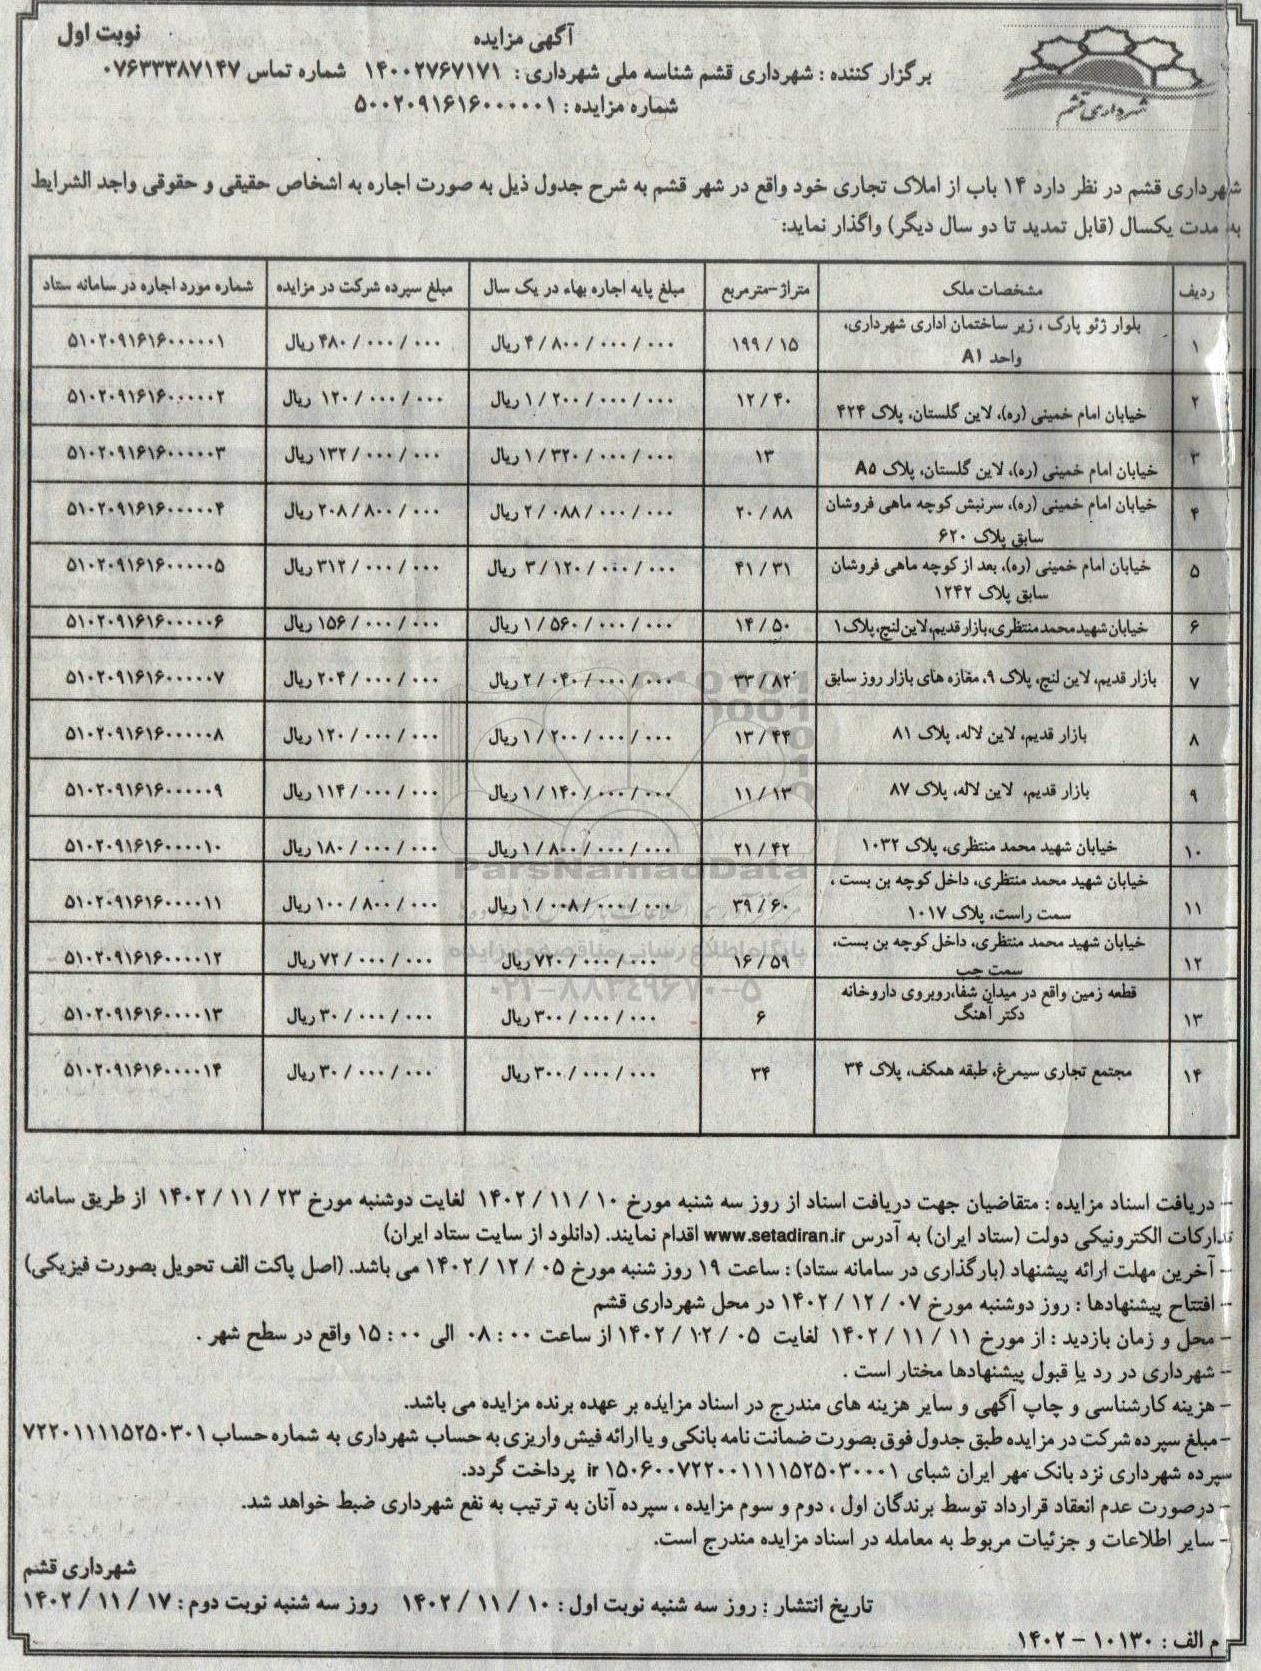 نوبت اول
آگهی مزایده
برگزار کننده : شهرداری قشم شناسه ملی شهرداری : ۱۴۰۰۲۷۶۷۱۷۱ شماره تماس ۰۷۶۳۳۳۸۷۱۴۷
شماره مزایده : ۵۰۰۲۰۹۱۶۱۶۰۰۰۰۰۱
شهرداری قشم
شهرداری قشم در نظر دارد ۱۴ باب از املاک تجاری خود واقع در شهر قشم به شرح جدول ذیل به صورت اجاره به اشخاص حقیقی و حقوقی واجد الشرایط
به مدت یکسال (قابل تمدید تا دو سال دیگر) واگذار نماید:
ردیف مشخصات ملک متراژ-مترمربع مبلغ پایه اجاره بهاء در یک سال مبلغ سپرده شرکت در مزایده شماره مورد اجاره در سامانه ستاد
۱ بلوار ژئو پارک ، زیر ساختمان اداری شهرداری، واحد A۱ ۱۹۹/۱۵ ۴/۸۰۰/۰۰۰/۰۰۰ ریال ۴۸۰/۰۰۰/۰۰۰ ریال ۵۱۰۲۰۹۱۶۱۶۰۰۰۰۰۱
۲ خیابان امام خمینی (ره)، لاین گلستان، پلاک ۴۲۴ ۱۲/۴۰ ۱/۲۰۰/۰۰۰/۰۰۰ ریال ۱۲۰/۰۰۰/۰۰۰ ریال ۵۱۰۲۰۹۱۶۱۶۰۰۰۰۰۲
۳ خیابان امام خمینی (ره)، لاین گلستان، پلاک A۵ ۱۳ ۱/۳۲۰/۰۰۰/۰۰۰ ریال ۱۳۲/۰۰۰/۰۰۰ ریال ۵۱۰۲۰۹۱۶۱۶۰۰۰۰۰۳
۴ خیابان امام خمینی (ره)، سرنبش کوچه ماهی فروشان سابق پلاک ۶۲۰ ۲۰/۸۸ ۲/۰۸۸/۰۰۰/۰۰۰ ریال ۲۰۸/۸۰۰/۰۰۰ ریال ۵۱۰۲۰۹۱۶۱۶۰۰۰۰۰۴
۵ خیابان امام خمینی (ره)، بعد از کوچه ماهی فروشان سابق پلاک ۱۲۴۲ ۴۱/۳۱ ۳/۱۲۰/۰۰۰/۰۰۰ ریال ۳۱۲/۰۰۰/۰۰۰ ریال ۵۱۰۲۰۹۱۶۱۶۰۰۰۰۰۵
۶ خیابان شهید محمد منتظری، بازار قدیم، لاین لنج، پلاک ۱ ۱۴/۵۰ ۱/۵۶۰/۰۰۰/۰۰۰ ریال ۱۵۶/۰۰۰/۰۰۰ ریال ۵۱۰۲۰۹۱۶۱۶۰۰۰۰۰۶
۷ بازار قدیم، لاین لنج، پلاک ۹، مغازه های بازار روز سابق ۳۳/۸۲ ۲/۰۴۰/۰۰۰/۰۰۰ ریال ۲۰۴/۰۰۰/۰۰۰ ریال ۵۱۰۲۰۹۱۶۱۶۰۰۰۰۰۷
۸ بازار قدیم، لاین لاله، پلاک ۸۱ ۱۳/۴۴ ۱/۲۰۰/۰۰۰/۰۰۰ ریال ۱۲۰/۰۰۰/۰۰۰ ریال ۵۱۰۲۰۹۱۶۱۶۰۰۰۰۰۸
۹ بازار قدیم، لاین لاله، پلاک ۸۷ ۱۱/۱۳ ۱/۱۴۰/۰۰۰/۰۰۰ ریال ۱۱۴/۰۰۰/۰۰۰ ریال ۵۱۰۲۰۹۱۶۱۶۰۰۰۰۰۹
۱۰ خیابان شهید محمد منتظری، پلاک ۱۰۳۲ ۲۱/۴۲ ۱/۸۰۰/۰۰۰/۰۰۰ ریال ۱۸۰/۰۰۰/۰۰۰ ریال ۵۱۰۲۰۹۱۶۱۶۰۰۰۰۱۰
۱۱ خیابان شهید محمد منتظری، داخل کوچه بن بست ، سمت راست، پلاک ۱۰۱۷ ۳۹/۶۰ ۱/۰۰۸/۰۰۰/۰۰۰ ریال ۱۰۰/۸۰۰/۰۰۰ ریال ۵۱۰۲۰۹۱۶۱۶۰۰۰۰۱۱
۱۲ خیابان شهید محمد منتظری، داخل کوچه بن بست، سمت چپ ۱۶/۵۹ ۷۲۰/۰۰۰/۰۰۰ ریال ۷۲/۰۰۰/۰۰۰ ریال ۵۱۰۲۰۹۱۶۱۶۰۰۰۰۱۲
۱۳ قطعه زمین واقع در میدان شفا،روبروی داروخانه دکتر آهنگ ۶ ۳۰۰/۰۰۰/۰۰۰ ریال ۳۰/۰۰۰/۰۰۰ ریال ۵۱۰۲۰۹۱۶۱۶۰۰۰۰۱۳
۱۴ مجتمع تجاری سیمرغ، طبقه همکف، پلاک ۳۴ ۳۴ ۳۰۰/۰۰۰/۰۰۰ ریال ۳۰/۰۰۰/۰۰۰ ریال ۵۱۰۲۰۹۱۶۱۶۰۰۰۰۱۴
ParsNamadData
پایگاه اطلاع رسانی مناقصه و مزایده
۰۲۱-۸۸۳۴۹۶۷۰-۵
- دریافت اسناد مزایده : متقاضیان جهت دریافت اسناد از روز سه شنبه مورخ ۱۴۰۲/۱۱/۱۰ لغایت دوشنبه مورخ ۱۴۰۲/۱۱/۲۳ از طریق سامانه
تدارکات الکترونیکی دولت (ستاد ایران) به آدرس www.setadiran.ir اقدام نمایند. (دانلود از سایت ستاد ایران)
- آخرین مهلت ارائه پیشنهاد (بارگذاری در سامانه ستاد) : ساعت ۱۹ روز شنبه مورخ ۱۴۰۲/۱۲/۰۵ می باشد. (اصل پاکت الف تحویل بصورت فیزیکی)
- افتتاح پیشنهادها : روز دوشنبه مورخ ۱۴۰۲/۱۲/۰۷ در محل شهرداری قشم
- محل و زمان بازدید : از مورخ ۱۴۰۲/۱۱/۱۱ لغایت ۱۴۰۲/۱۲/۰۵ از ساعت ۰۸:۰۰ الی ۱۵:۰۰ واقع در سطح شهر .
- شهرداری در رد یا قبول پیشنهادها مختار است .
- هزینه کارشناسی و چاپ آگهی و سایر هزینه های مندرج در اسناد مزایده بر عهده برنده مزایده می باشد.
- مبلغ سپرده شرکت در مزایده طبق جدول فوق بصورت ضمانت نامه بانکی و یا ارائه فیش واریزی به حساب شهرداری به شماره حساب ۷۲۲۰۱۱۱۱۵۲۵۰۳۰۱
سپرده شهرداری نزد بانک مهر ایران شبای ir ۱۵۰۶۰۰۷۲۲۰۰۱۱۱۱۵۲۵۰۳۰۰۰۱ پرداخت گردد.
- درصورت عدم انعقاد قرارداد توسط برندگان اول ، دوم و سوم مزایده ، سپرده آنان به ترتیب به نفع شهرداری ضبط خواهد شد.
- سایر اطلاعات و جزئیات مربوط به معامله در اسناد مزایده مندرج است.
شهرداری قشم
تاریخ انتشار : روز سه شنبه نوبت اول : ۱۴۰۲/۱۱/۱۰ روز سه شنبه نوبت دوم : ۱۴۰۲/۱۱/۱۷
م الف : ۱۰۱۳۰ - ۱۴۰۲